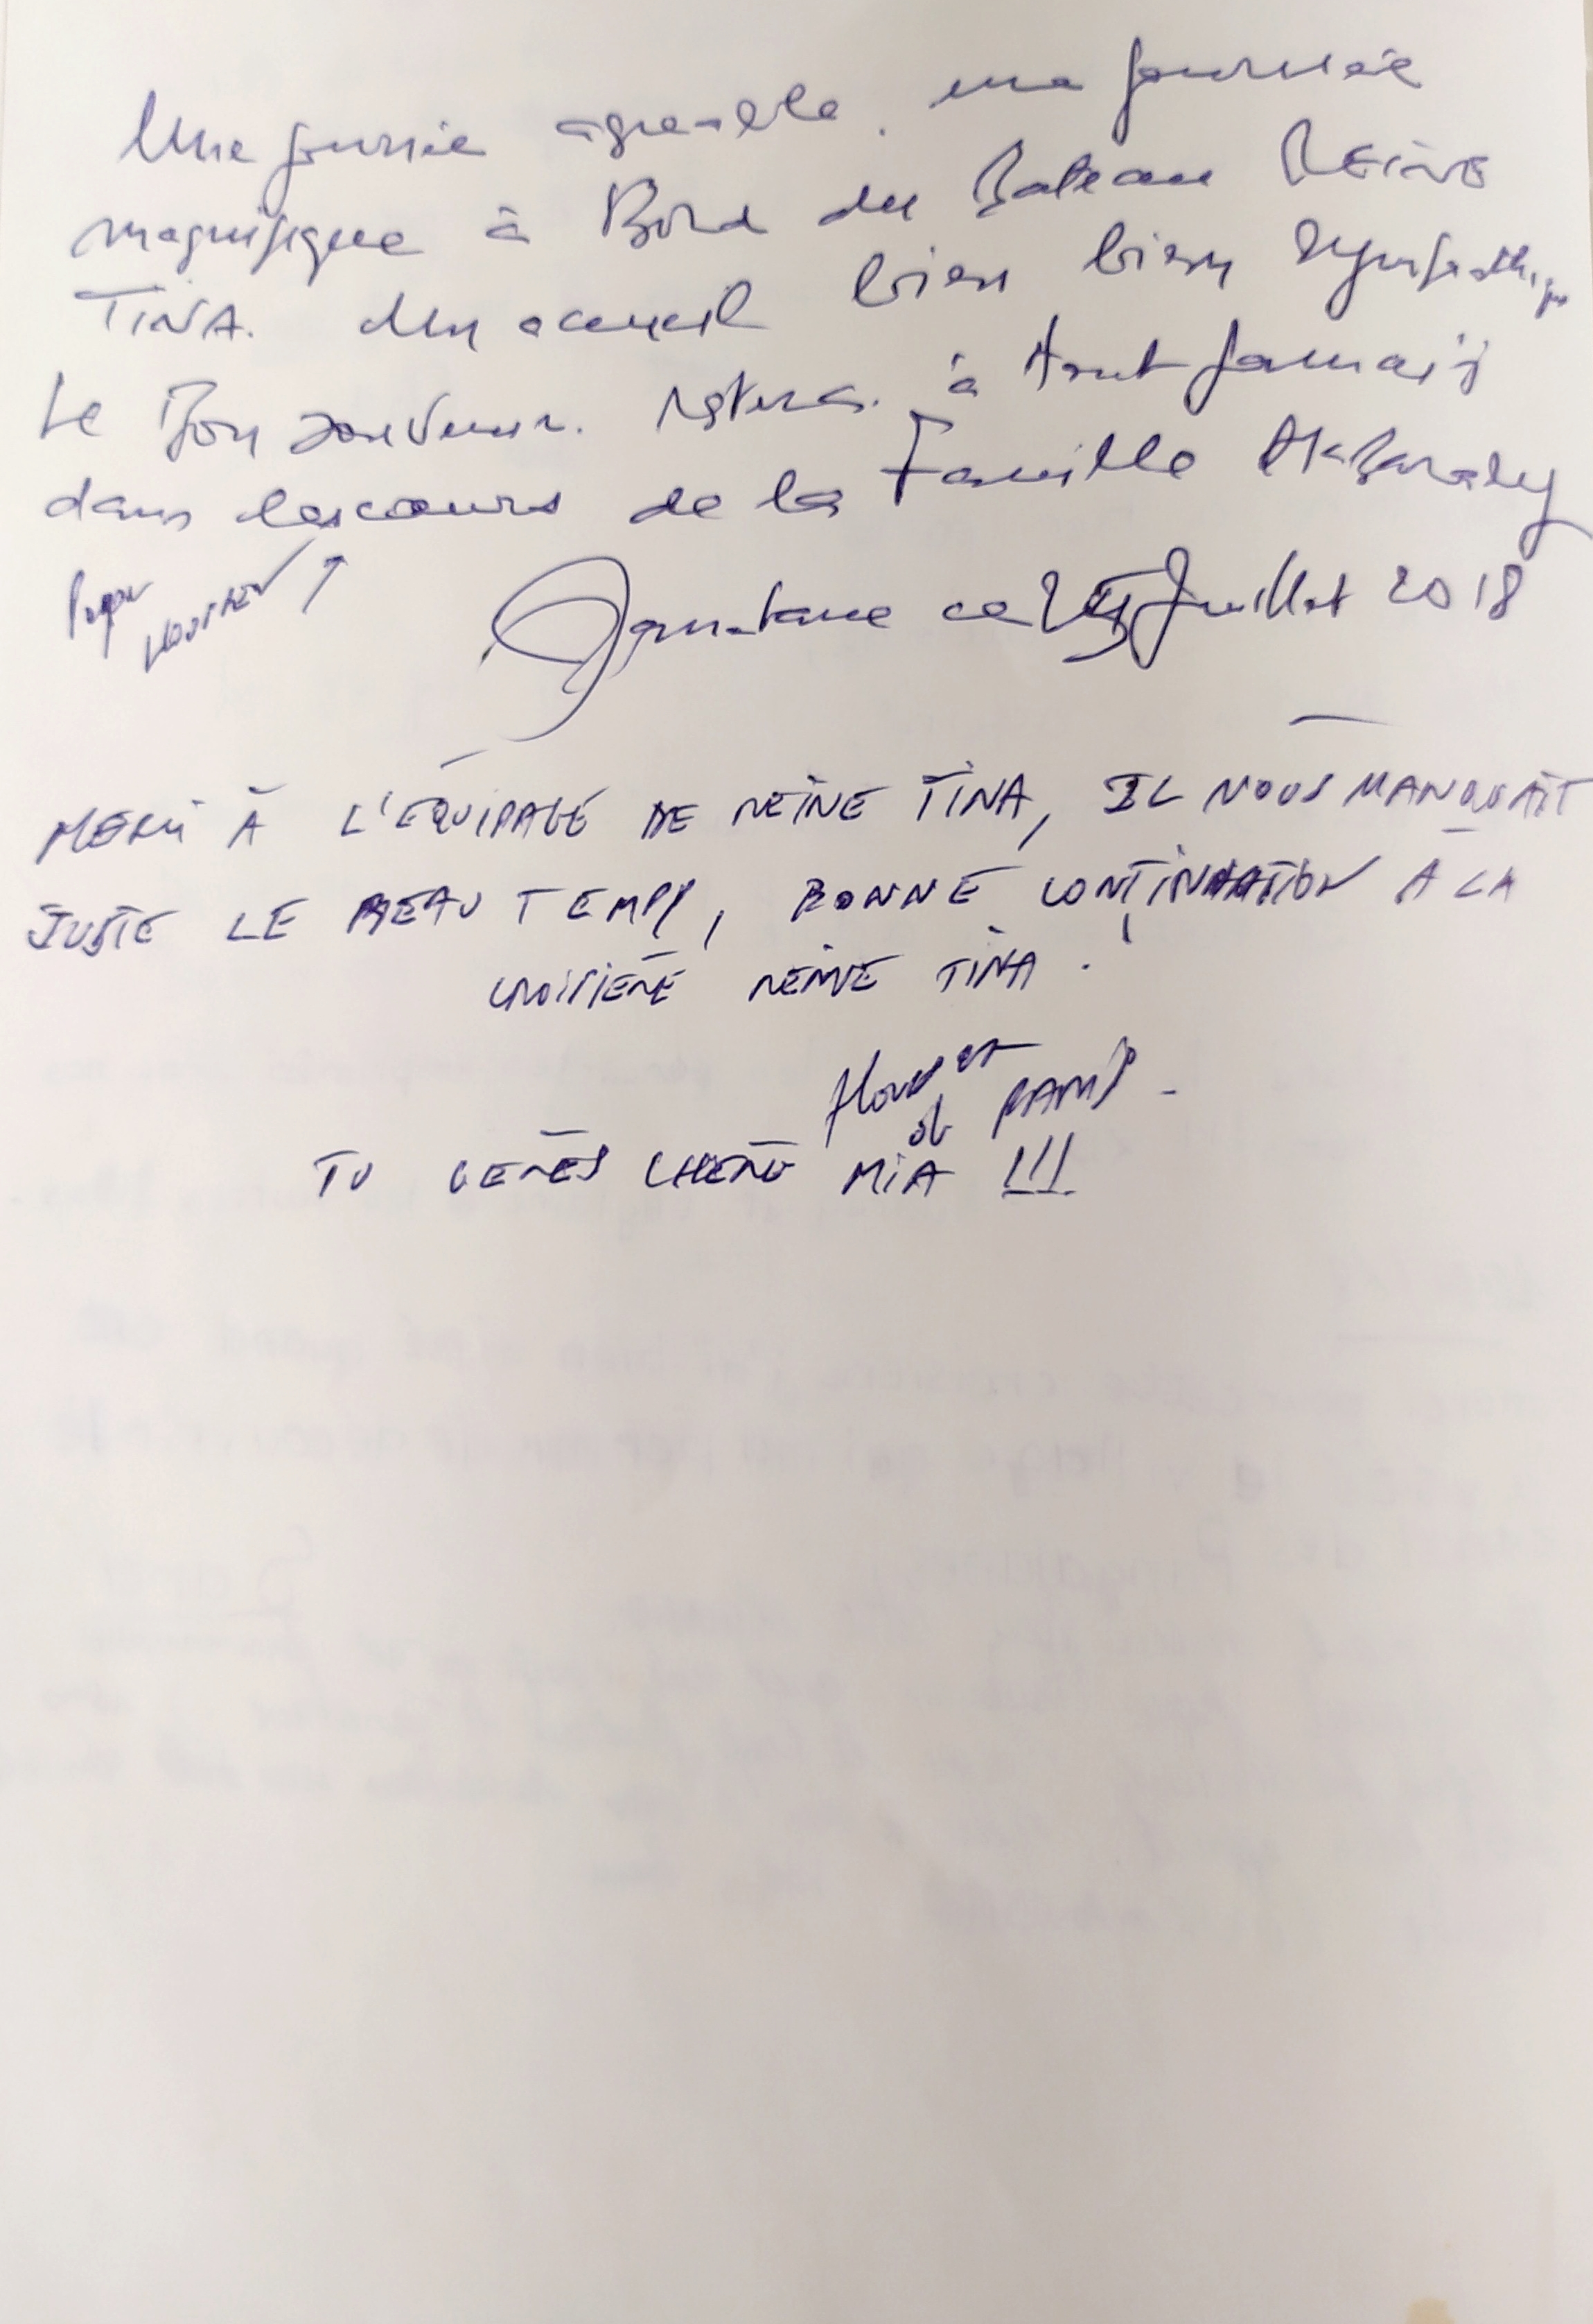 Une journée agreable. une journée
magnifique à Bord du Bateau REINE
TINA. Un acceuil bien bien sympathique
Le Bon souvenir. restera. à tout jamais
dans les cœurs de la Famille Akbaraly
Papa
ce 25 Juillet 2018
MERCI À L'ÉQUIPAGE DE REINE TINA, IL NOUS MANQUAIT
JUSTE LE BEAU TEMPS, BONNE CONTINUATION À LA
CROISIÈRE REINE TINA.
TU GÈRES CHÈRE MIA !!!